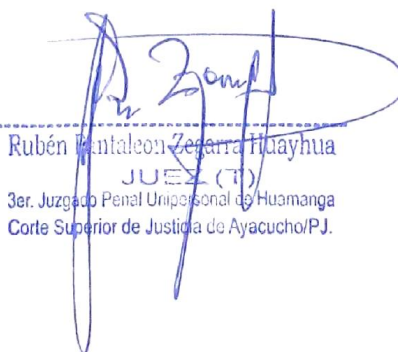 Rubén Pantaleon Zegarra Huayhua
JUEZ (T)
3er. Juzgado Penal Unipersonal de Huamanga
Corte Superior de Justicia de Ayacucho/PJ.